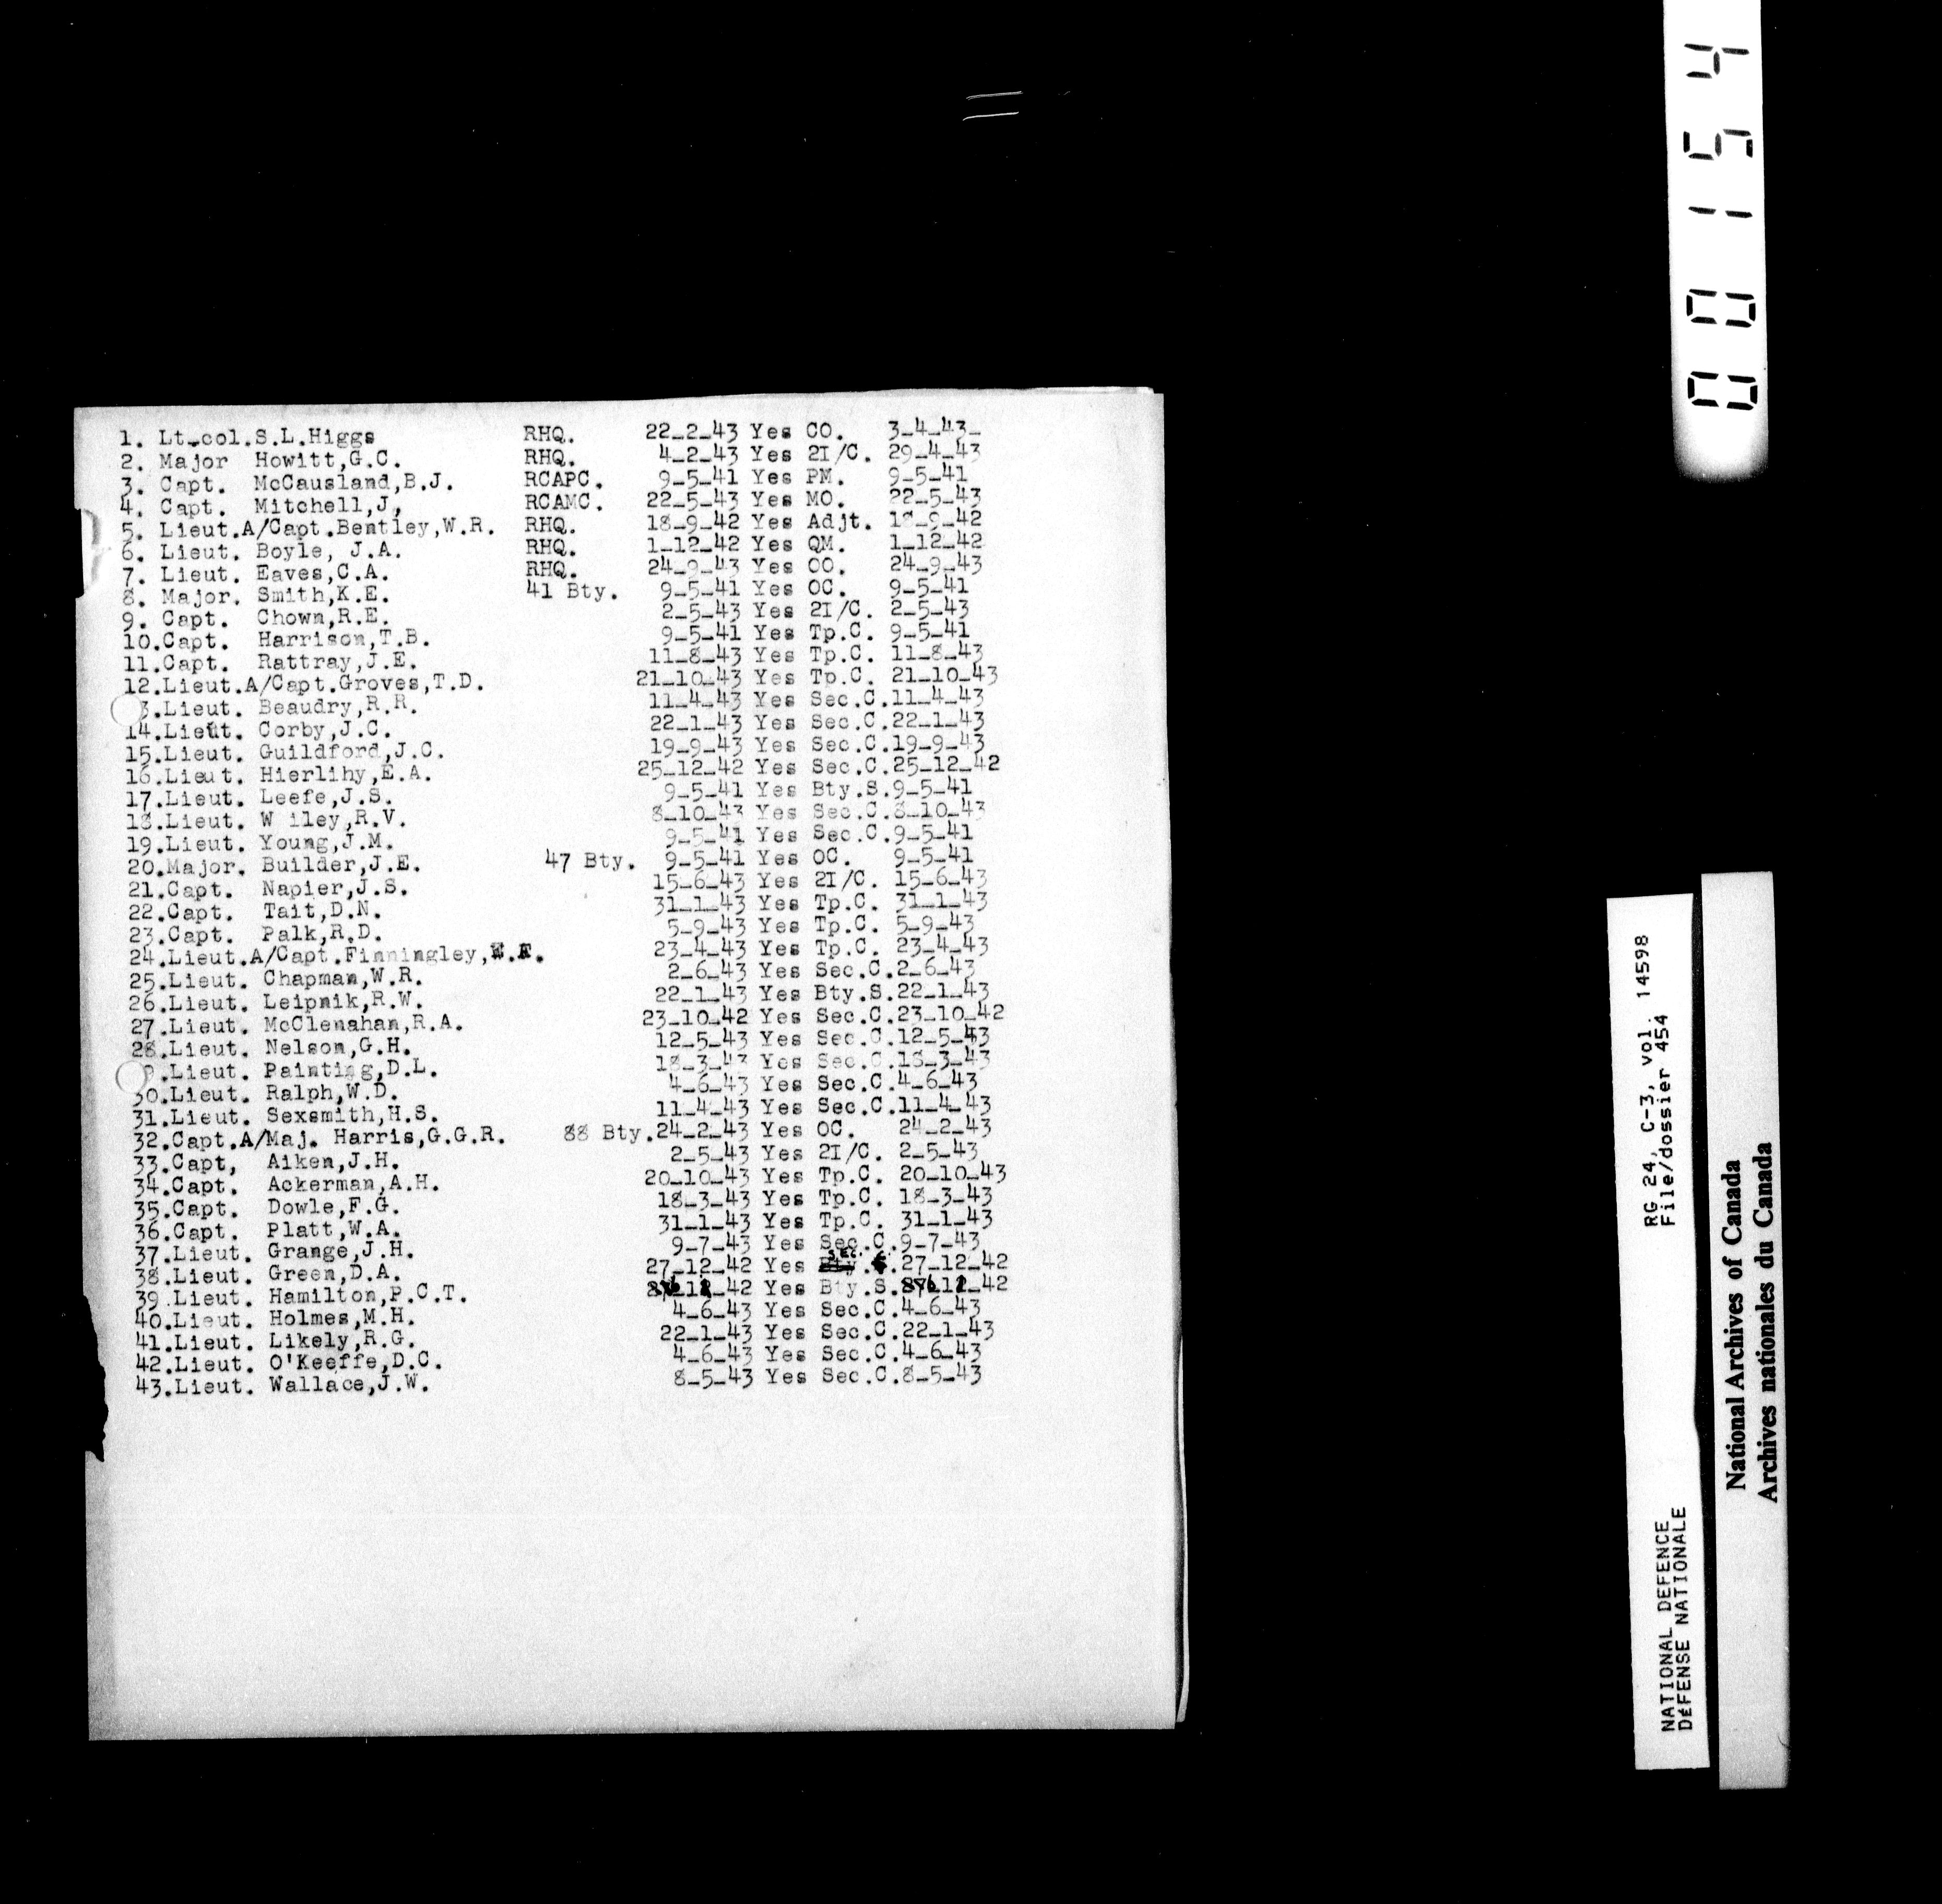 1. Lt-col.S.L.Higgs RHQ. 22-2-43 Yes CO. 3-4-43-
2. Major Howitt,G.C. RHQ. 4-2-43 Yes 2I/C. 29-4-43
3. Capt. McCausland,B.J. RCAPC. 9-5-41 Yes PM. 9-5-41
4. Capt. Mitchell,J, RCAMC. 22-5-43 Yes MO. 22-5-43
5. Lieut.A/Capt.Bentley,W.R. RHQ. 18-9-42 Yes Adjt. 18-9-42
6. Lieut. Boyle, J.A. RHQ. 1-12-42 Yes QM. 1-12-42
7. Lieut. Eaves,C.A. RHQ. 24-9-43 Yes OO. 24-9-43
8. Major. Smith,K.E. 41 Bty. 9-5-41 Yes OC. 9-5-41
9. Capt. Chown,R.E. 2-5-43 Yes 2I/C. 2-5-43
10.Capt. Harrison,T.B. 9-5-41 Yes Tp.C. 9-5-41
11.Capt. Rattray,J.E. 11-8-43 Yes Tp.C. 11-8-43
12.Lieut.A/Capt.Groves,T.D. 21-10-43 Yes Tp.C. 21-10-43
3.Lieut. Beaudry,R.R. 11-4-43 Yes Sec.C.11-4-43
14.Lieut. Corby,J.C. 22-1-43 Yes Sec.C.22-1-43
15.Lieut. Guildford,J.C. 19-9-43 Yes Sec.C.19-9-43
16.Lieut. Hierlihy,E.A. 25-12-42 Yes Sec.C.25-12-42
17.Lieut. Leefe,J.S. 9-5-41 Yes Bty.S.9-5-41
18.Lieut. W iley,R.V. 8-10-43 Yes Sec.C.8-10-43
19.Lieut. Young,J.M. 9-5-41 Yes Sec.C.9-5-41
20.Major. Builder,J.E. 47 Bty. 9-5-41 Yes OC. 9-5-41
21.Capt. Napier,J.S. 15-6-43 Yes 2I/C. 15-6-43
22.Capt. Tait,D.N. 31-1-43 Yes Tp.C. 31-1-43
23.Capt. Palk,R.D. 5-9-43 Yes Tp.C. 5-9-43
24.Lieut.A/Capt.Finningley, 23-4-43 Yes Tp.C. 23-4-43
25.Lieut. Chapman,W.R. 2-6-43 Yes Sec.C.2-6-43
26.Lieut. Leipnik,R.W. 22-1-43 Yes Bty.S.22-1-43
27.Lieut. McClenahan,R.A. 23-10-42 Yes Sec.C.23-10-42
28.Lieut. Nelson,G.H. 12-5-43 Yes Sec.C.12-5-43
9.Lieut. Painting,D.L. 18-3-43 Yes Sec.C.18-3-43
30.Lieut. Ralph,W.D. 4-6-43 Yes Sec.C.4-6-43
31.Lieut. Sexsmith,H.S. 11-4-43 Yes Sec.C.11-4-43
32.Capt.A/Maj. Harris,G.G.R. 88 Bty.24-2-43 Yes OC. 24-2-43
33.Capt, Aiken,J.H. 2-5-43 Yes 2I/C. 2-5-43
34.Capt. Ackerman,A.H. 20-10-43 Yes Tp.C. 20-10-43
35.Capt. Dowle,F.G. 18-3-43 Yes Tp.C. 18-3-43
36.Capt. Platt,W.A. 31-1-43 Yes Tp.C. 31-1-43
37.Lieut. Grange,J.H. 9-7-43 Yes Sec.C.9-7-43
38.Lieut. Green,D.A. 27-12-42 Yes SEC. C.27-12-42
39.Lieut. Hamilton,P.C.T. Yes Bty.S.
40.Lieut. Holmes,M.H. 4-6-43 Yes Sec.C.4-6-43
41.Lieut. Likely,R.G. 22-1-43 Yes Sec.C.22-1-43
42.Lieut. O'Keeffe,D.C. 4-6-43 Yes Sec.C.4-6-43
43.Lieut. Wallace,J.W. 8-5-43 Yes Sec.C.8-5-43
00154
NATIONAL DEFENCE RG 24, C-3, vol. 14598
DéFENSE NATIONALE File/dossier 454
National Archives of Canada
Archives nationales du Canada